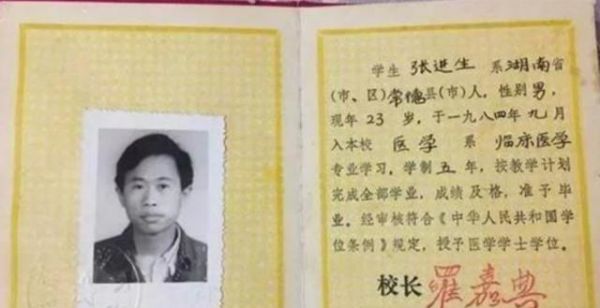 学生 张进生 系湖南省
(市、区)常德县(市)人，性别男，
现年23岁，于一九八四年九月
入本校 医学 系 临床医学
专业学习。学制五年，按教学计划
完成全部学业，成绩及格，准予毕
业。经审核符合《中华人民共和国学
位条例》规定，授予医学学士学位。
校长 罗嘉典